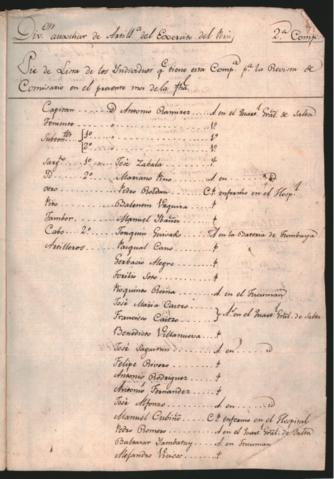 Div.on auxiliar de Artill.a del Exercito del Perú 2.a Comp.
Pie de Lista de los Individuos q.e tiene esta Comp.a p.a la Revista de
Comisario en el presente mes de la fha.
Capitan D Antonio Ramirez A en el Quart.l Gral. de Salta
Teniente 1º
Subten.tes 1º 1º
2º 1º
Sarg.to 1º José Zabala †
Id 2º Mariano Pino A en D
otro Pedro Roldan C.n enfermo en el Hosp.l
Pito Valentin Vequira †
Tambor Manuel Ibañez †
Cabo 2º Joaquin A en la Bateria de Humbaya
Artilleros Pasqual Cano †
Gerbacio Alegre †
Toribio Soto †
Roquines A en el Tucuman
José Maria Castro
Francisco Castro A.n en el Quart Gral. de Salta
Benedicto Villanueva †
José A en D
Felipe Rivero †
Antonio Rodriguez †
Antonio Fernandez †
José Alfonzo A en D
Manuel Cubiño C.n enfermo en el Hospital
Pedro Romero A en el Quart Gral. de Salta
Baltazar Zambatay A en Tucuman
Alejandro †